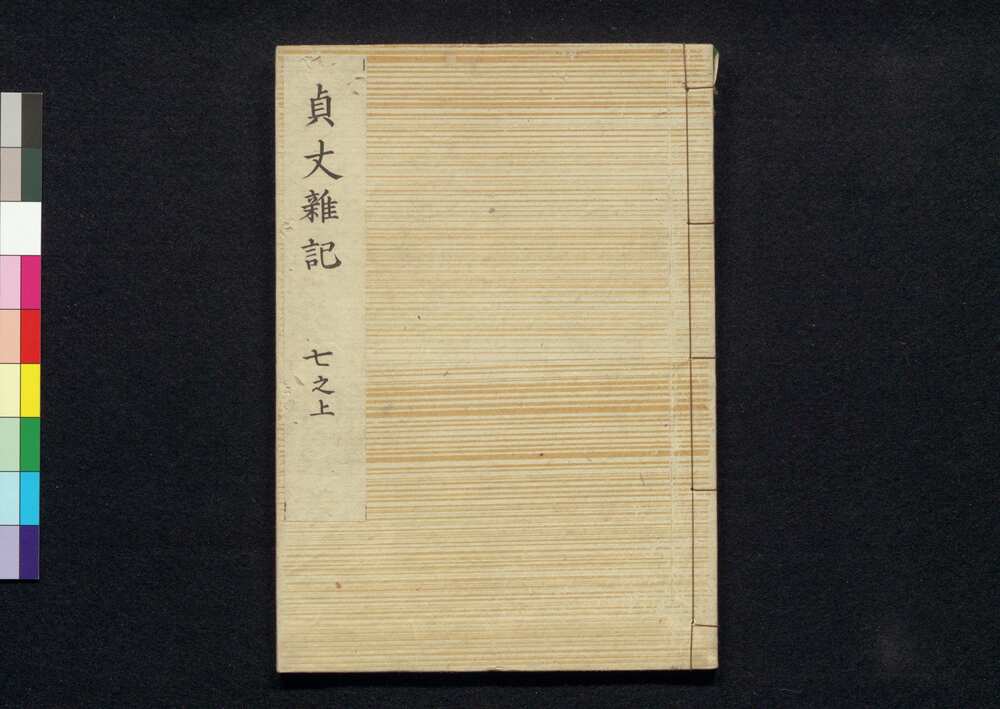 貞丈雜記
七之上